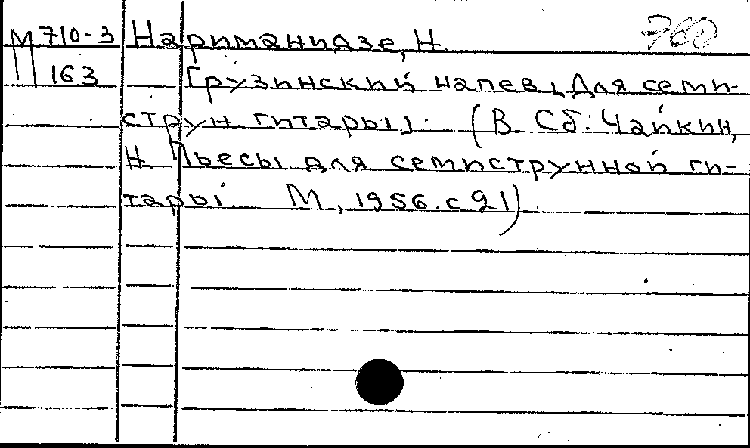 М 710-3 Нариманидзе, Н. 760
163 Грузинский напев, Для семи-
струн гитары]. (В Сб: Чайкин,
Н Пьесы для семиструнной ги-
тары М, 1956. с 91)